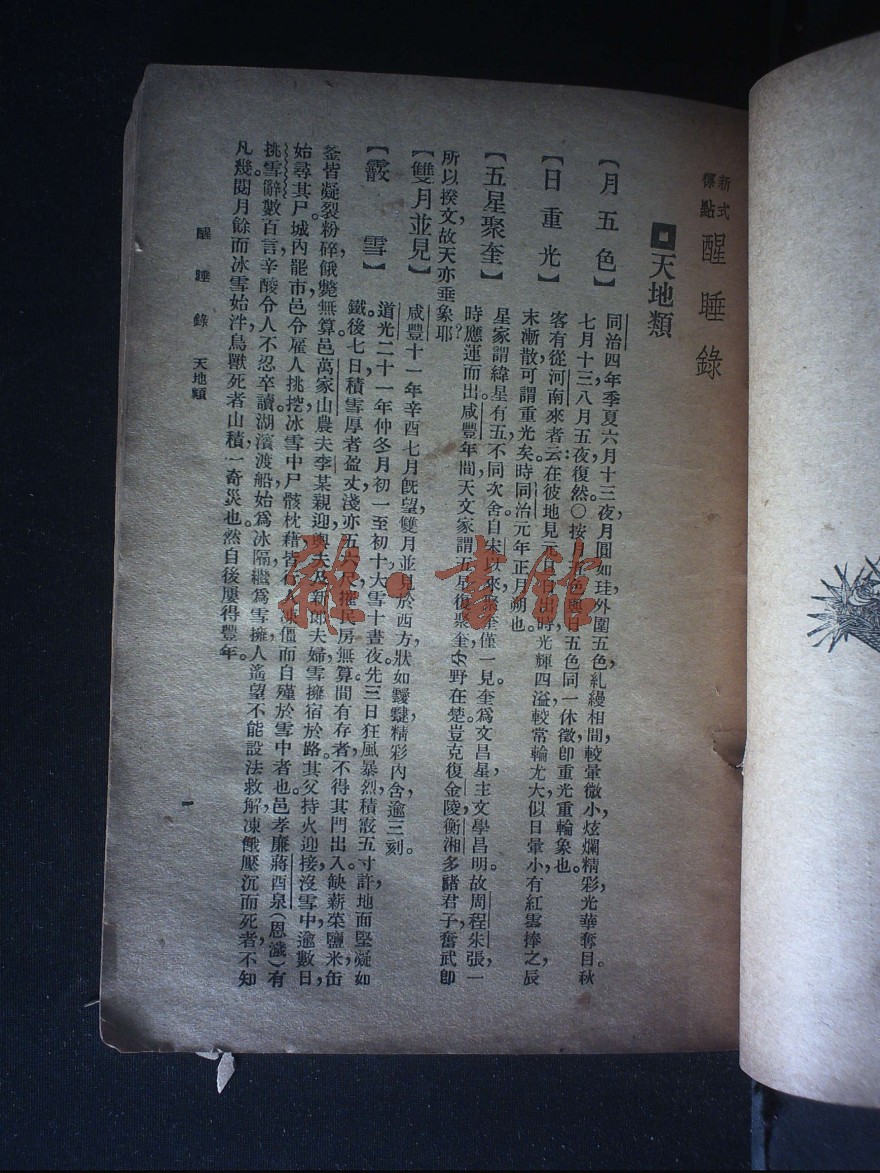 新式標點 醒睡錄
天地類
【月五色】 同治四年季夏六月十三夜月圓如珪外圍五色糺縵相間較暈微小炫爛精彩光華奪目。秋
七月十三八月五夜復然。○按月五色與日五色同一休徵卽重光重輪象也。
【日重光】 客有從河南來者云：在彼地見元旦日出時光輝四溢較常輪尤大似日暈小有紅雲捧之辰
末漸散可謂重光矣。時同治元年正月朔也。
【五星聚奎】 星家謂緯星有五，不同次舍自宋以來聚奎僅一見。奎爲文昌星，主文學昌明。故周程朱張，一
時應運而出。咸豐年間，天文家謂五星復聚奎，分野在楚。豈克復金陵，衡湘多諸君子奮武卽
所以揆文，故天亦垂象耶？
【雙月並見】 咸豐十一年辛酉七月旣望，雙月並見於西方，狀如靉靆，精彩內含，逾三刻。
【霰雪】 道光二十一年仲冬月初一至初十，大雪十晝夜。先三日狂風暴烈，積霰五寸許，地面堅凝如
鐵。後七日，積雪厚者盈丈，淺亦五六尺，摧民房無算。間有存者，不得其門出入，缺薪菜鹽米，缶
釜皆凝裂粉碎，餓斃無算。邑萬家山農夫李某親迎，輿夫及新郎夫婦，雪擁宿於路。其父持火迎接，沒雪中，逾數日，
始尋其尸。城內罷市，邑令雇人挑挖，冰雪中尸骸枕藉，皆行人凍僵而自殣於雪中者也。邑孝廉蔣酉泉（恩澂）有
挑雪辭數百言，辛酸令人不忍卒讀。湖濱渡船，始爲冰隔，繼爲雪擁，人遙望不能設法救解，凍餓壓沉而死者，不知
凡幾。閱月餘而冰雪始泮，鳥獸死者山積，一奇災也。然自後屢得豐年。
醒睡錄 天地類
一
雜·書館